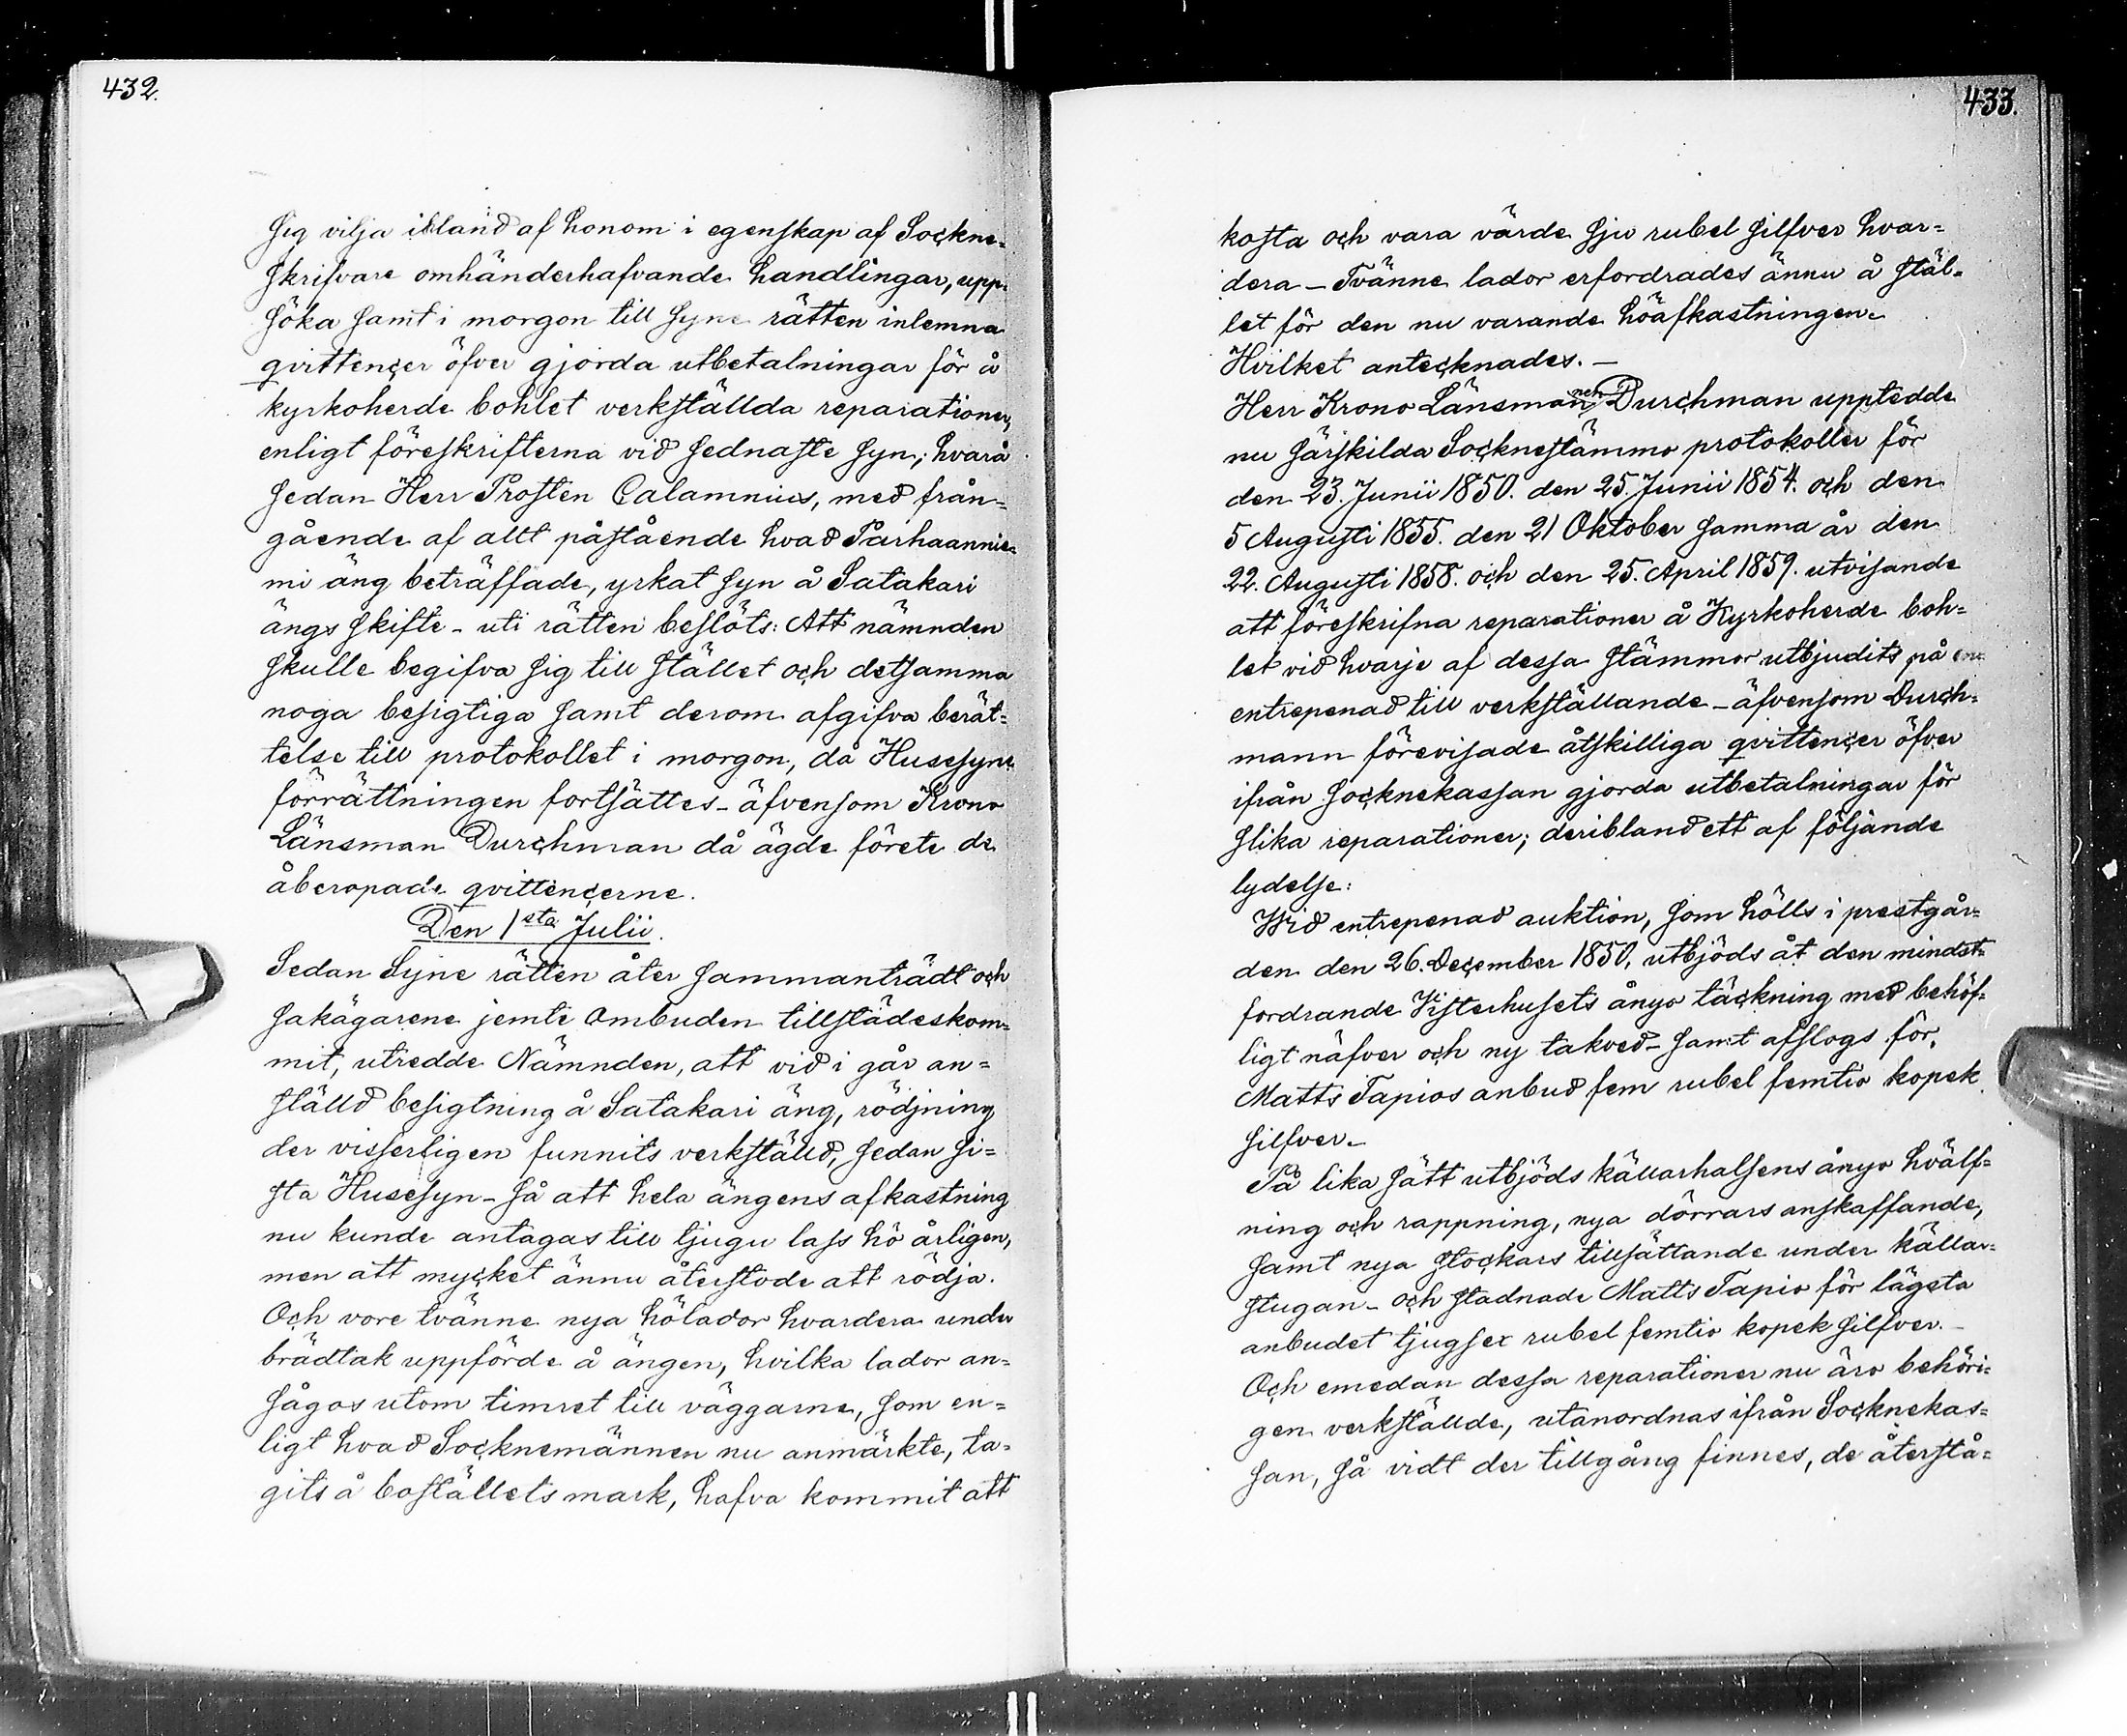 432.
sig vilja ibland af honom i egenskap af Sockne-
skrifvare omhänderhafvande handlingar, upp-
söka samt i morgon till Syne rätten inlemna
qvittencer öfver gjorda utbetalningar för å
kyrkoherde bohlet verkställda reparationer,
enligt föreskrifterna vid sednaste syn; hvarå
sedan Herr Prosten Calamnius, med från-
gående af allt påstående hvad Parhaannie-
mi äng beträffade, yrkat syn å Satakari
ängs skifte - uti rätten beslöts: Att nämnden
skulle begifva sig till stället och detsamma
noga besigtiga samt derom afgifva berät-
telse till protokollet i morgon, då Husesyns
förrättningen fortsättes - äfvensom Krono
Länsman Durchman då ägde förete de
åberopade qvittencerne.
Den 1sta Julii.
Sedan Syne rätten åter sammanträdt och
sakägarene jemte Ombuden tillstädeskom-
mit, utredde Nämnden, att vid i går an-
ställd besigtning å Satakari äng, rödjning
der visserligen funnits verkställd, sedan si-
sta Husesyn - så att hela ängens afkastning
nu kunde antagas till tjugu lass hö årligen,
men att mycket ännu återstode att rödja.
Och vore tvänne nya hölador hvardera under
brädtak uppförde å ängen, hvilka lador an-
sågos utom timret till väggarne, som en-
ligt hvad Socknemännen nu anmärkte, ta-
gits å boställets mark, hafva kommit att
433.
kosta och vara värde sju rubel silfver hvar-
dera - Tvänne lador erfordrades ännu å stäl-
let för den nu varande höafkastningen.
Hvilket antecknades. -
Herr Krono Länsmannen Durchman uppteddde
nu särskilda Sockneståmmo protokoller för
den 23. Junii 1850. den 25. Junii 1854. och den
5 Augusti 1855. den 21 Oktober samma år den
22. Augusti 1858. och den 25. April 1859. utvisande
att föreskrifna reparationer å Kyrkoherde boh-
let vid hvarje af dessa stämmor utbjudits på
entrepenad till verkställande - äfvensom Durch-
mann förevisade åtskilliga qvittencer öfver
ifrån socknekassan gjorda utbetalningar för
slika reparationer; deribland ett af följande
lydelse:
Wid entrepenad auktion, som hölls i prestgår-
den den 26. December 1850, utbjöds åt den mindst-
fordrande Visterhusets ånyo täckning med behöf-
ligt näfver och ny takved - samt afslogs för
Matts Tapios anbud fem rubel femtio kopek
silfver. -
På lika sätt utbjöds källarhalsens ånyo hvälf-
ning och rappning, nya dörrars anskaffande,
samt nya stockars tillsättande under källar-
stugan - och stadnade Matts Tapio för lägsta
anbudet tjugsex rubel femtio kopek silfver. -
Och emedan dessa reparationer nu äro behöri-
gen verkställde, utanordnas ifrån Socknekas-
san, så vidt der tillgång finnes, de återstå-